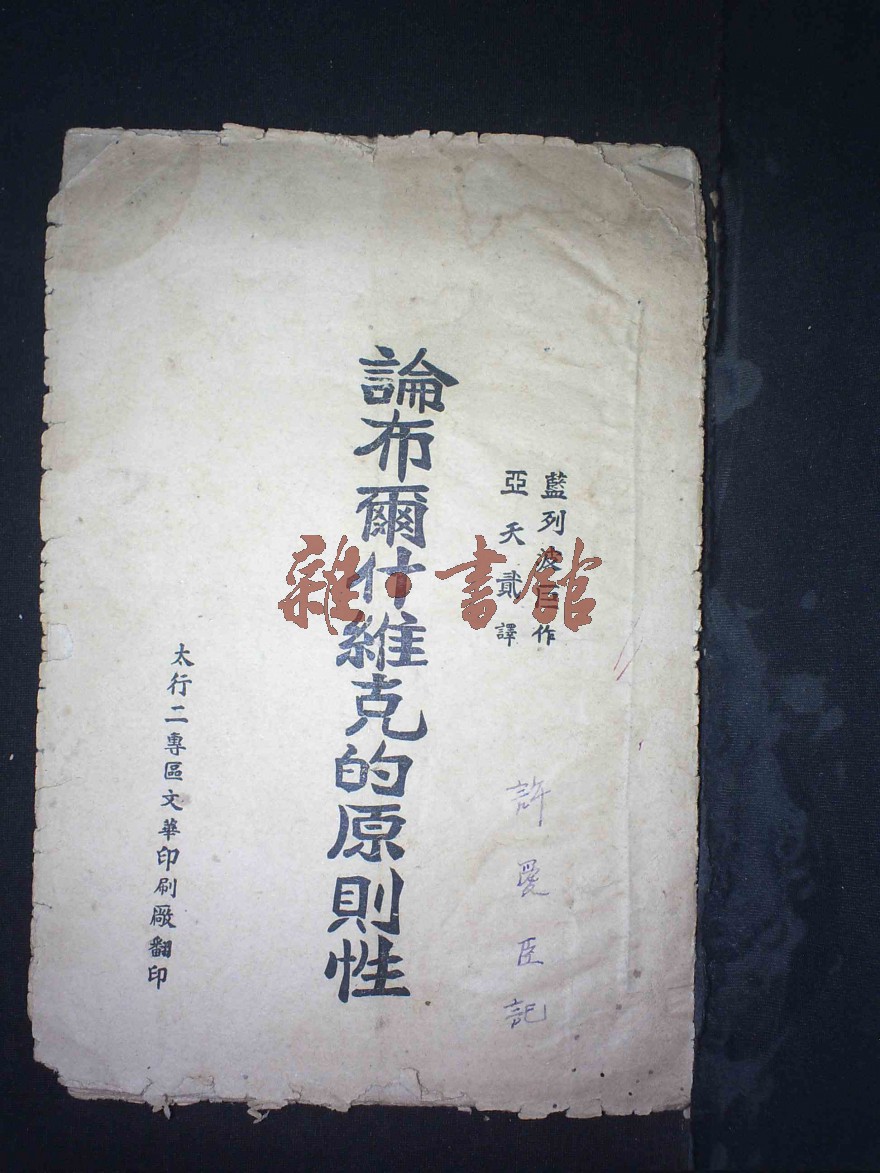 藍列波巨作
亞天貳譯
論布爾什維克的原則性
太行二專區文華印刷廠翻印
許 臣記
雜·書館